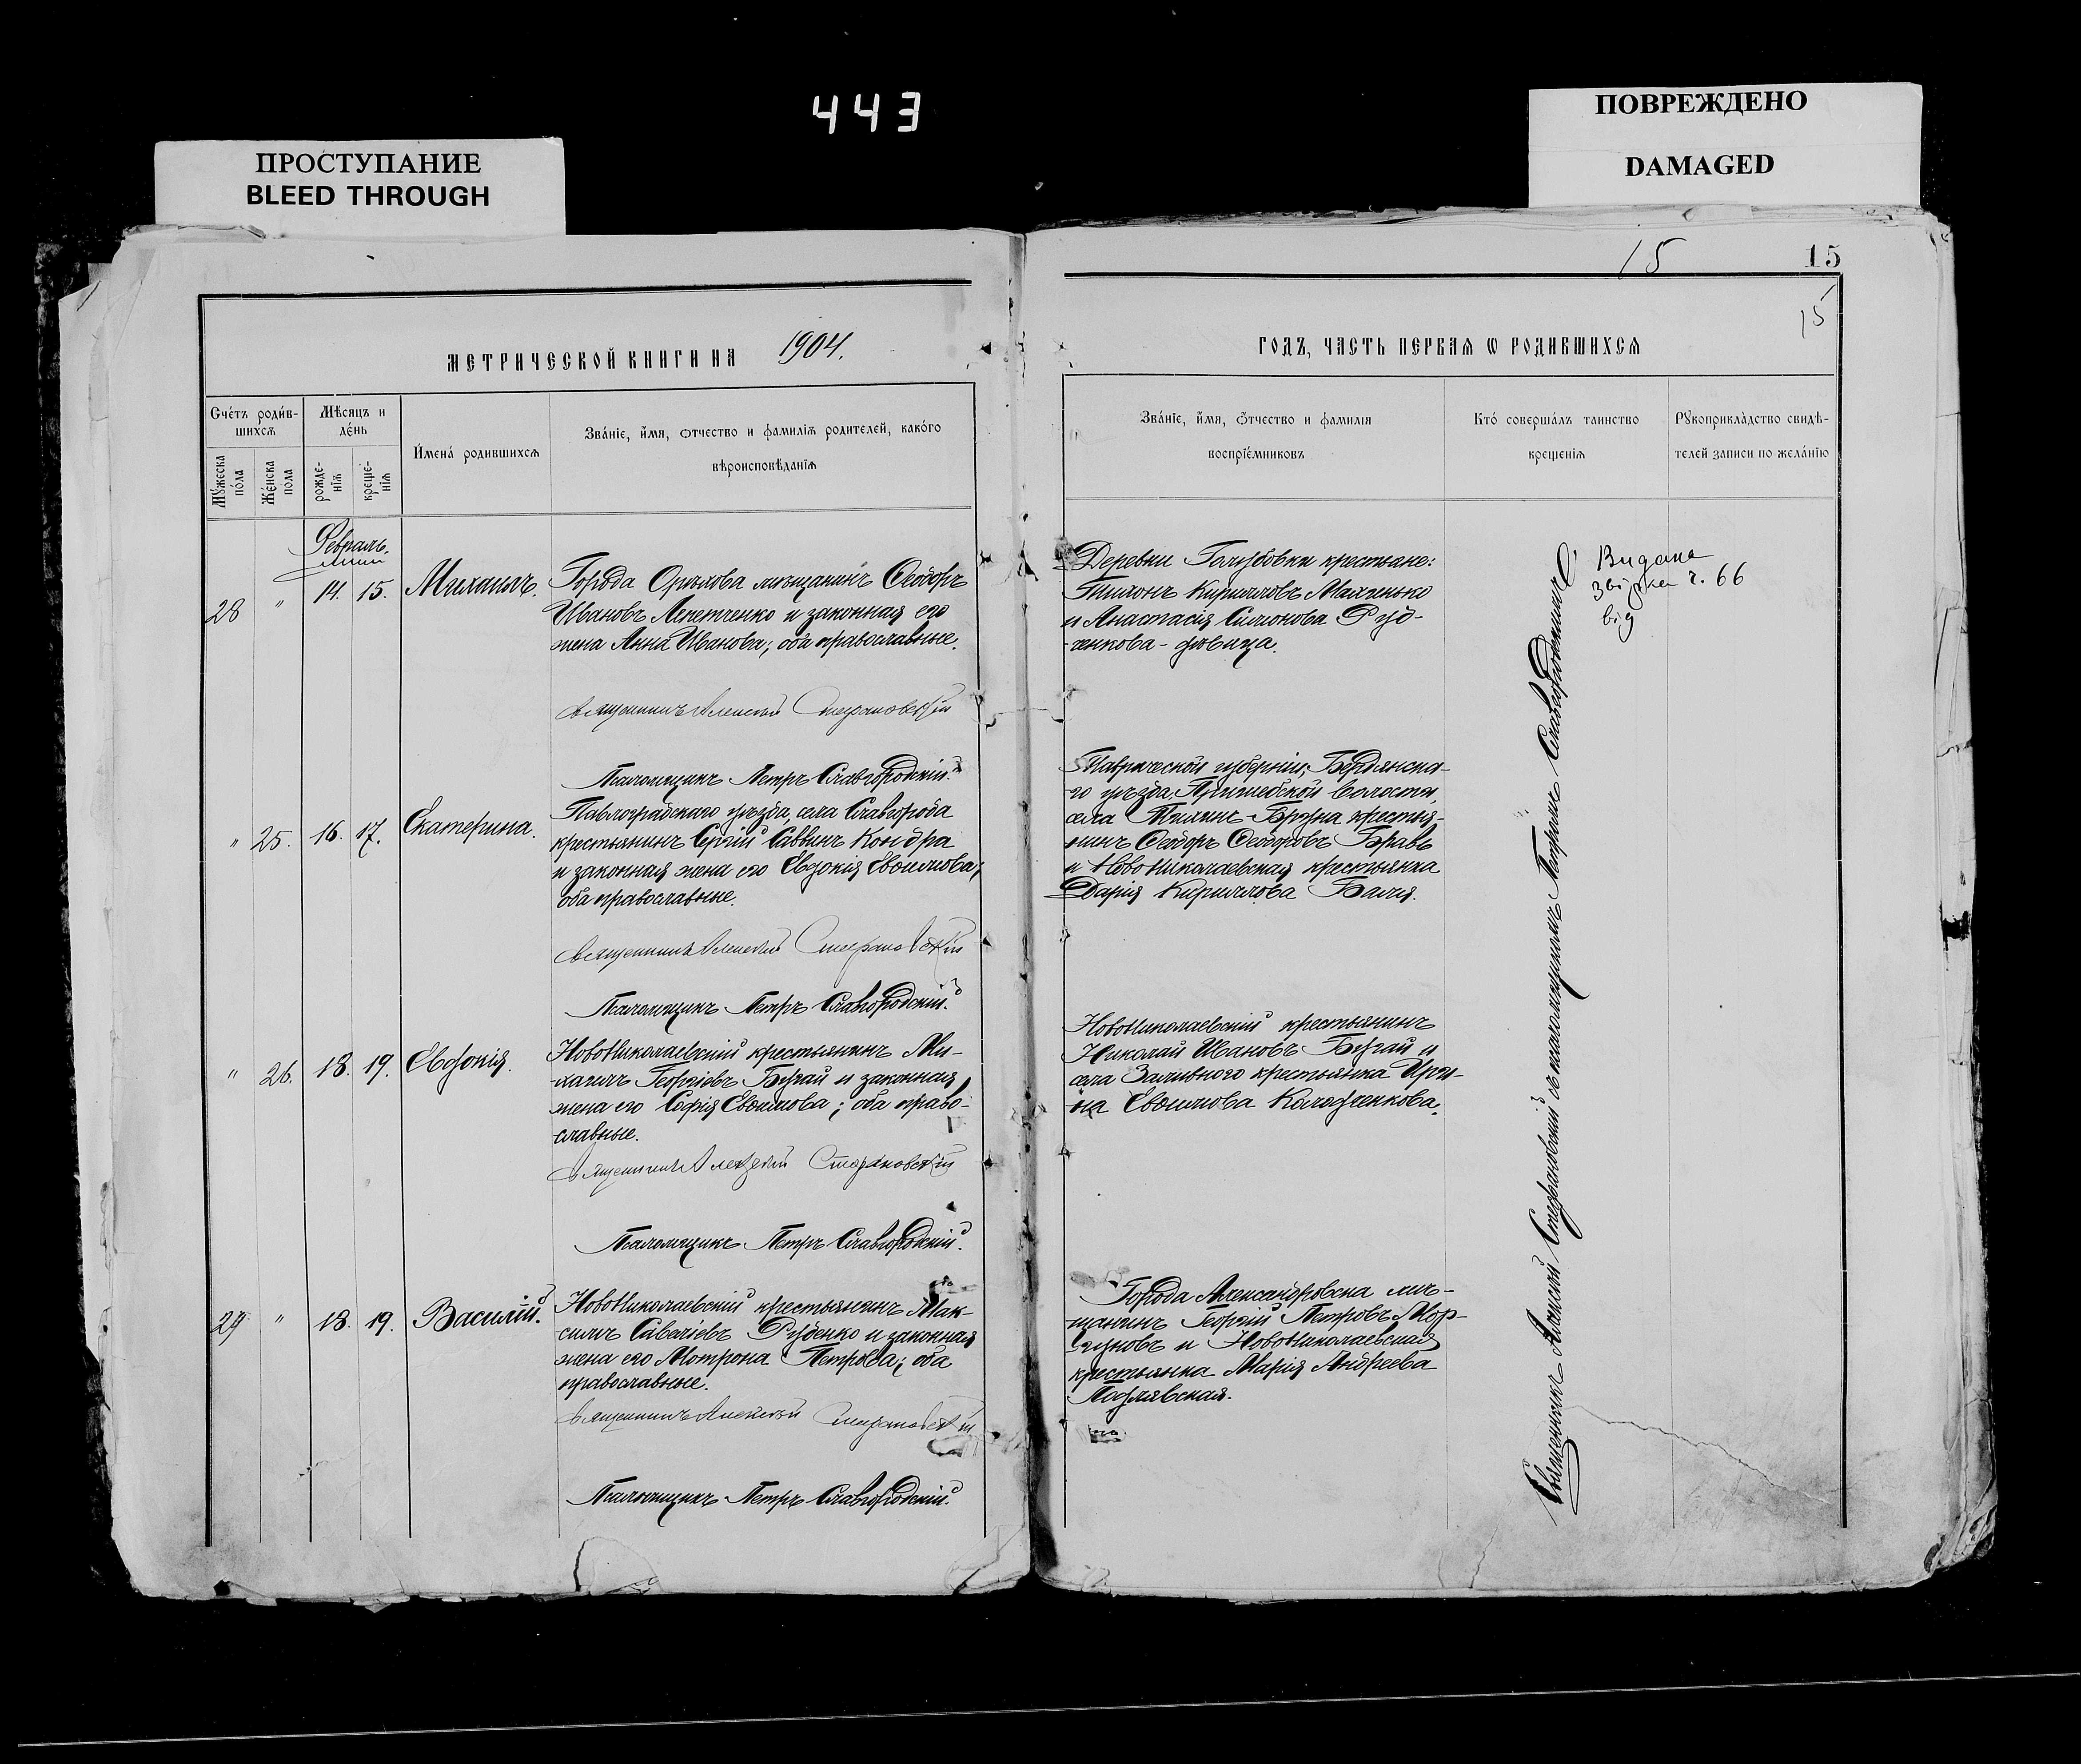 443
ПРОСТУПАНИЕ
BLEED THROUGH
ПОВРЕЖДЕНО
DAMAGED
15
15
15
МЕТРИЧЕСКОЙ КНИГИ НА 1904.
ГОДЪ, ЧАСТЬ ПЕРВАЯ Ѡ РОДИВШИХСЯ
Счéтъ родив-
шихся
Мѣсяцъ и
дéнь
Мꙋжеска
пóла
Жéнска
пола
рожде-
нія
креще-
нія
И́менá родившихся
Звáніе, и́мя, ѻтчество и фамилія родителей, какóго
вѣроисповѣданія
Звáніе, и́мя, ѻтчество и фамилія
воспріéмниковъ
Ктó совершáлъ таинство
крещенія
Рꙋкоприклàдство свидѣ-
телей записи по желáнію
Февраль.
28 " 14. 15. Михаилъ.
Города Орѣхова мѣщанинъ Ѳеодоръ
Ивановъ Лепетченко и законная его
жена Анна Иванова; оба православные.
Священникъ Алексій Стефановскій
Псаломщикъ Петръ Славгородскій.
Деревни Голубовки крестьяне:
Тихонъ Кирилловъ Махненько
и Анастасія Симонова Руд-
ченкова - дѣвица.
Видана
звірка ч. 66
від
" 25. 16. 17. Екатерина.
Павлоградскаго уѣзда, села Славгорода
крестьянинъ Сергій Саввинъ Кондра
и законная жена его Евдокія Евѳимова;
оба православные.
Священникъ Алексій Стефановскій
Псаломщикъ Петръ Славгородскій.
Таврической губерніи, Бердянска-
го уѣзда, Пришибской волости,
села Тихинъ-Бруна крестья-
нинъ Ѳеодоръ Ѳеодоровъ Бравъ
и Новониколаевская крестьянка
Дарія Кириллова Балія.
" 26. 18. 19. Евдокія.
Новониколаевскій крестьянинъ Ми-
хаилъ Георгіевъ Бугай и законная
жена его Софія Евѳимова; оба право-
славные.
Священникъ Алексій Стефановскій
Псаломщикъ Петръ Славгородскій.
Новониколаевскій крестьянинъ
Николай Ивановъ Бугай и
села Заливного крестьянка Ири-
на Евѳимова Колодченкова.
29 " 18. 19. Василій.
Новониколаевскій крестьянинъ Мак-
симъ Саватіевъ Руденко и законная
жена его Мотрона Петрова; оба
православные.
Священникъ Алексій Стефановскій
Псаломщикъ Петръ Славгородскій.
Города Александровска мѣ-
щанинъ Георгій Петровъ Мор-
гуновъ и Новониколаевская
крестьянка Марія Андреева
Подлявская.
Священникъ Алексій Стефановскій съ псаломщикомъ Петромъ Славгородскимъ